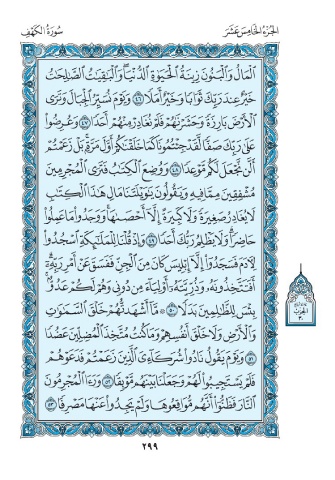 الجزء الخامس عشر
سورة الكهف
ٱلْمَالُ وَٱلْبَنُونَ زِينَةُ ٱلْحَيَوٰةِ ٱلدُّنْيَا ۖ وَٱلْبَٰقِيَٰتُ ٱلصَّٰلِحَٰتُ
خَيْرٌ عِندَ رَبِّكَ ثَوَابًا وَخَيْرٌ أَمَلًا ٤٦ وَيَوْمَ نُسَيِّرُ ٱلْجِبَالَ وَتَرَى
ٱلْأَرْضَ بَارِزَةً وَحَشَرْنَٰهُمْ فَلَمْ نُغَادِرْ مِنْهُمْ أَحَدًا ٤٧ وَعُرِضُوا۟
عَلَىٰ رَبِّكَ صَفًّا لَّقَدْ جِئْتُمُونَا كَمَا خَلَقْنَٰكُمْ أَوَّلَ مَرَّةٍۭ ۚ بَلْ زَعَمْتُمْ
أَلَّن نَّجْعَلَ لَكُم مَّوْعِدًا ٤٨ وَوُضِعَ ٱلْكِتَٰبُ فَتَرَى ٱلْمُجْرِمِينَ
مُشْفِقِينَ مِمَّا فِيهِ وَيَقُولُونَ يَٰوَيْلَتَنَا مَالِ هَٰذَا ٱلْكِتَٰبِ
لَا يُغَادِرُ صَغِيرَةً وَلَا كَبِيرَةً إِلَّآ أَحْصَىٰهَا ۚ وَوَجَدُوا۟ مَا عَمِلُوا۟
حَاضِرًا ۗ وَلَا يَظْلِمُ رَبُّكَ أَحَدًا ٤٩ وَإِذْ قُلْنَا لِلْمَلَٰٓئِكَةِ ٱسْجُدُوا۟
لِـَٔادَمَ فَسَجَدُوٓا۟ إِلَّآ إِبْلِيسَ كَانَ مِنَ ٱلْجِنِّ فَفَسَقَ عَنْ أَمْرِ رَبِّهِۦٓ ۗ
أَفَتَتَّخِذُونَهُۥ وَذُرِّيَّتَهُۥٓ أَوْلِيَآءَ مِن دُونِى وَهُمْ لَكُمْ عَدُوٌّۢ ۚ
بِئْسَ لِلظَّٰلِمِينَ بَدَلًا ٥٠ مَّآ أَشْهَدتُّهُمْ خَلْقَ ٱلسَّمَٰوَٰتِ
وَٱلْأَرْضِ وَلَا خَلْقَ أَنفُسِهِمْ وَمَا كُنتُ مُتَّخِذَ ٱلْمُضِلِّينَ عَضُدًا
٥١ وَيَوْمَ يَقُولُ نَادُوا۟ شُرَكَآءِىَ ٱلَّذِينَ زَعَمْتُمْ فَدَعَوْهُمْ
فَلَمْ يَسْتَجِيبُوا۟ لَهُمْ وَجَعَلْنَا بَيْنَهُم مَّوْبِقًا ٥٢ وَرَءَا ٱلْمُجْرِمُونَ
ٱلنَّارَ فَظَنُّوٓا۟ أَنَّهُم مُّوَاقِعُوهَا وَلَمْ يَجِدُوا۟ عَنْهَا مَصْرِفًا ٥٣
٢٩٩